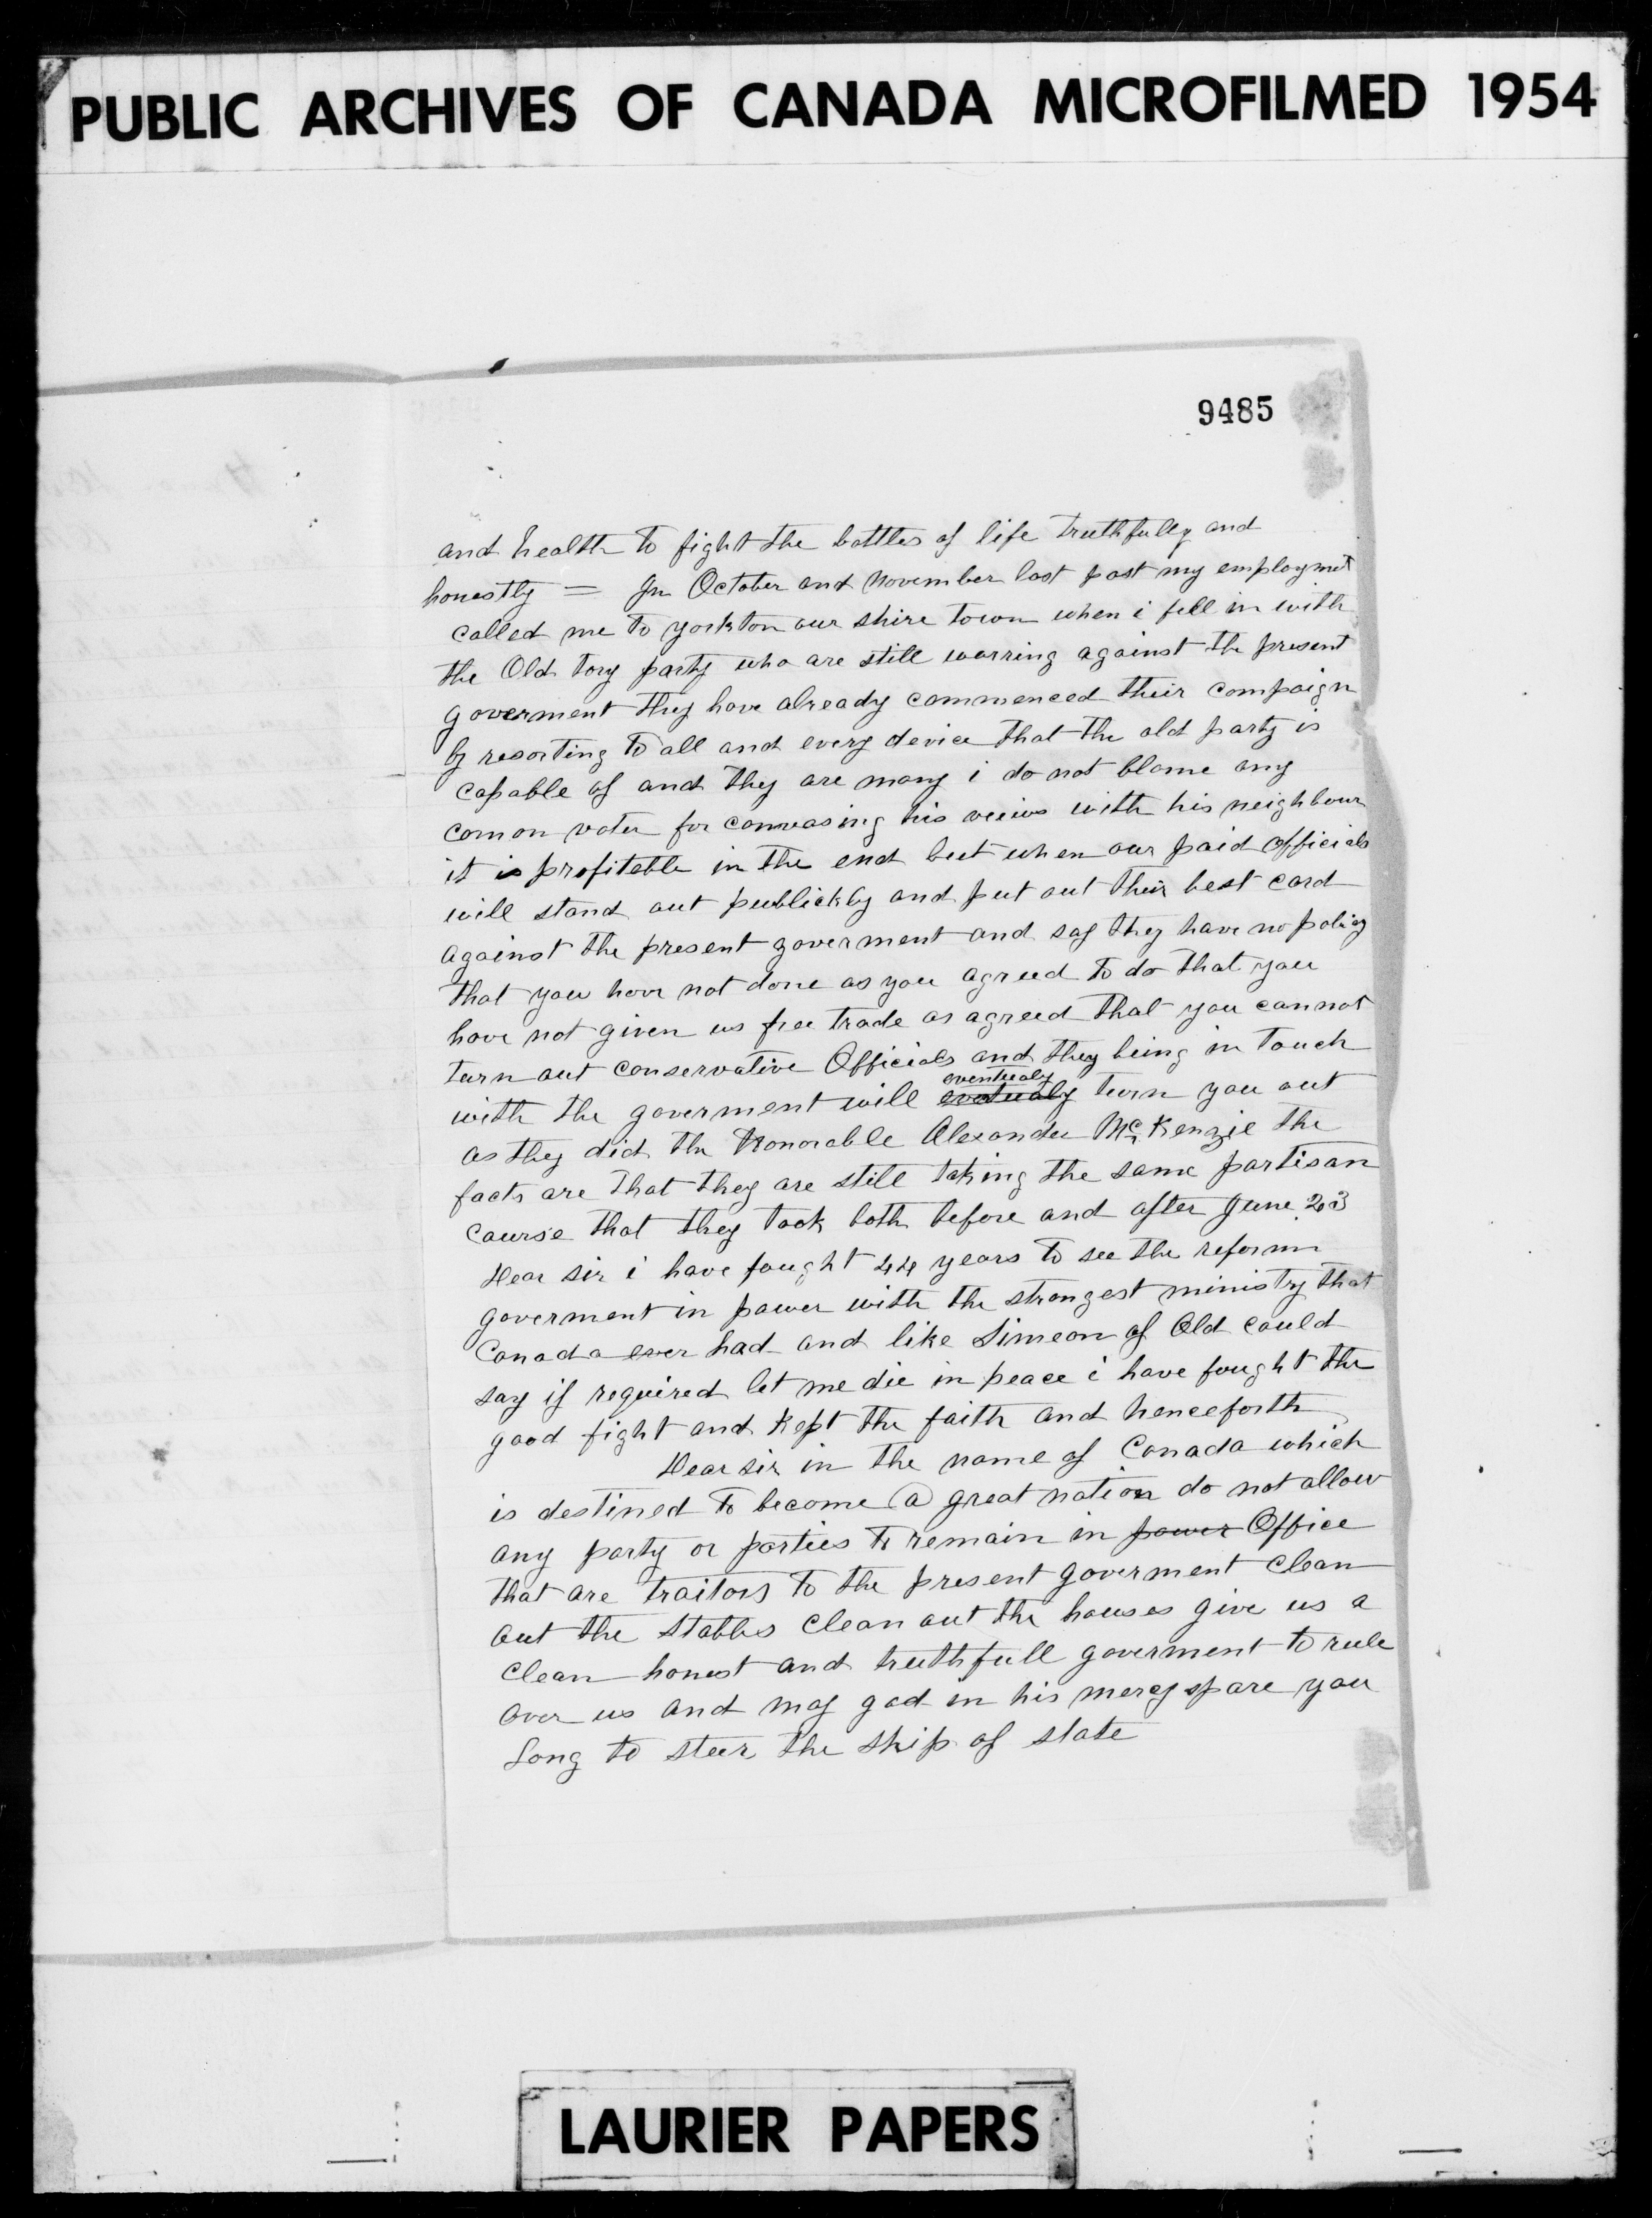 PUBLIC ARCHIVES OF CANADA MICROFILMED 1954
9485
and health to fight the battles of life truthfully and
honestly = In October and November last past my employmet
called me to yorkton our shire town when i fell in with
the Old tory party who are still warring against the present
goverment they have already commenced their campaign
by resorting to all and every device that the old party is
capable of and they are many i do not blame any
comon voter for canvasing his veiws with his neighbour
it is profitable in the end but when our paid officials
will stand out publickly and put out their best card
against the present goverment and say they have no policy
that you have not done as you agreed to do that you
have not given us free trade as agreed that you cannot
turn out conservative Officials and they being in touch
eventualy
with the goverment will evetualy turn you out
as they did the Honorable Alexander McKenzie the
facts are that they are still taking the same partisan
course that they took both before and after June 23
Dear sir i have fought 44 years to see the reform
goverment in power with the strongest ministry that
Canada ever had and like Simeon of Old could
say if required let me die in peace i have fought the
good fight and kept the faith and henceforth
Dear sir in the name of Canada which
is destined to become a great nation do not allow
any party or parties to remain in power Office
that are traitors to the present goverment clean
out the stables clean out the houses give us a
clean honest and truthfull goverment to rule
over us and may god in his mercy spare you
Long to steer the ship of state
LAURIER PAPERS